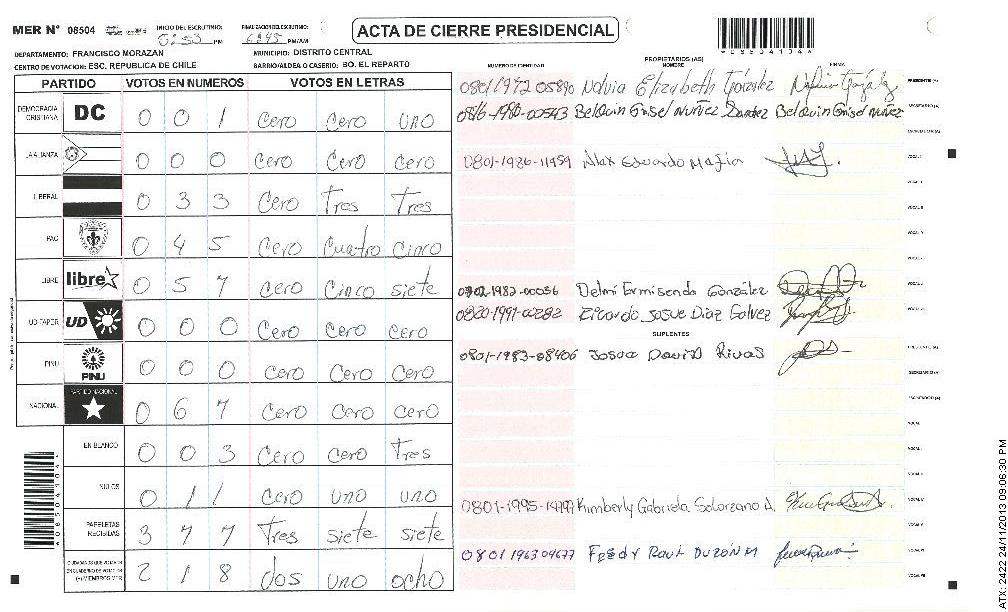 MER Nº 08504 INICIO DEL ESCRUTINIO: 5:53 PM FINALIZACION DEL ESCRUTINIO: 6:45 PM/AM
ACTA DE CIERRE PRESIDENCIAL
DEPARTAMENTO: FRANCISCO MORAZAN MUNICIPIO: DISTRITO CENTRAL
CENTRO DE VOTACION: ESC. REPUBLICA DE CHILE BARRIO/ALDEA O CASERIO: BO. EL REPARTO
NUMERO DE IDENTIDAD PROPIETARIOS (AS) NOMBRE FIRMA
PARTIDO VOTOS EN NUMEROS VOTOS EN LETRAS
DEMOCRACIA CRISTIANA DC 0 0 1 Cero Cero uno
LA ALIANZA 0 0 0 Cero Cero Cero
LIBERAL 0 3 3 Cero Tres Tres
PAC 0 4 5 Cero Cuatro Cinco
LIBRE libre 0 5 7 Cero Cinco siete
UD-FAPER UD 0 0 0 Cero Cero Cero
PINU PINU 0 0 0 Cero Cero Cero
NACIONAL PARTIDO NACIONAL 0 6 7 Cero Cero Cero
EN BLANCO 0 0 3 Cero Cero Tres
NULOS 0 1 1 Cero uno uno
PAPELETAS RECIBIDAS 3 7 7 Tres siete siete
2 1 8 dos uno ocho
0801 1972 05890 Nolvia Elizabeth González PRESIDENTE (A)
0816-1980-00543 Belquin Grisel Nuñez Belquin Grisel Nuñez SECRETARIO (A)
0801-1986-11959 Alex Eduardo Mafia VOCAL I
1982-00056 Delmi Ermisenda González
0820-1991-00282 Ricardo Josue Diaz Galvez
SUPLENTES
0801-1983-08406 Josue David Rivas PRESIDENTE (A)
SECRETARIO (A)
ESCRUTADOR (A)
0801-1995- Kimberly Gabriela Solorzano A.
0801 1963 04677 Fredy Raul
A08504104
ATX: 2422 24/11/2013 09:06:30 PM